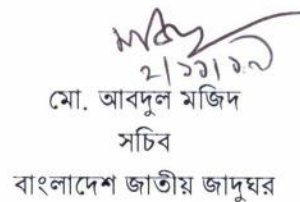 মো. আবদুল মজিদ
সচিব
বাংলাদেশ জাতীয় জাদুঘর